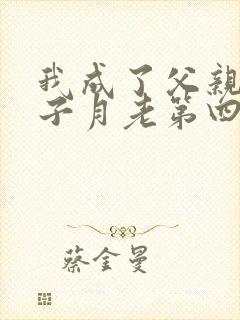 我成了父親
子月老第四
蔡金曼